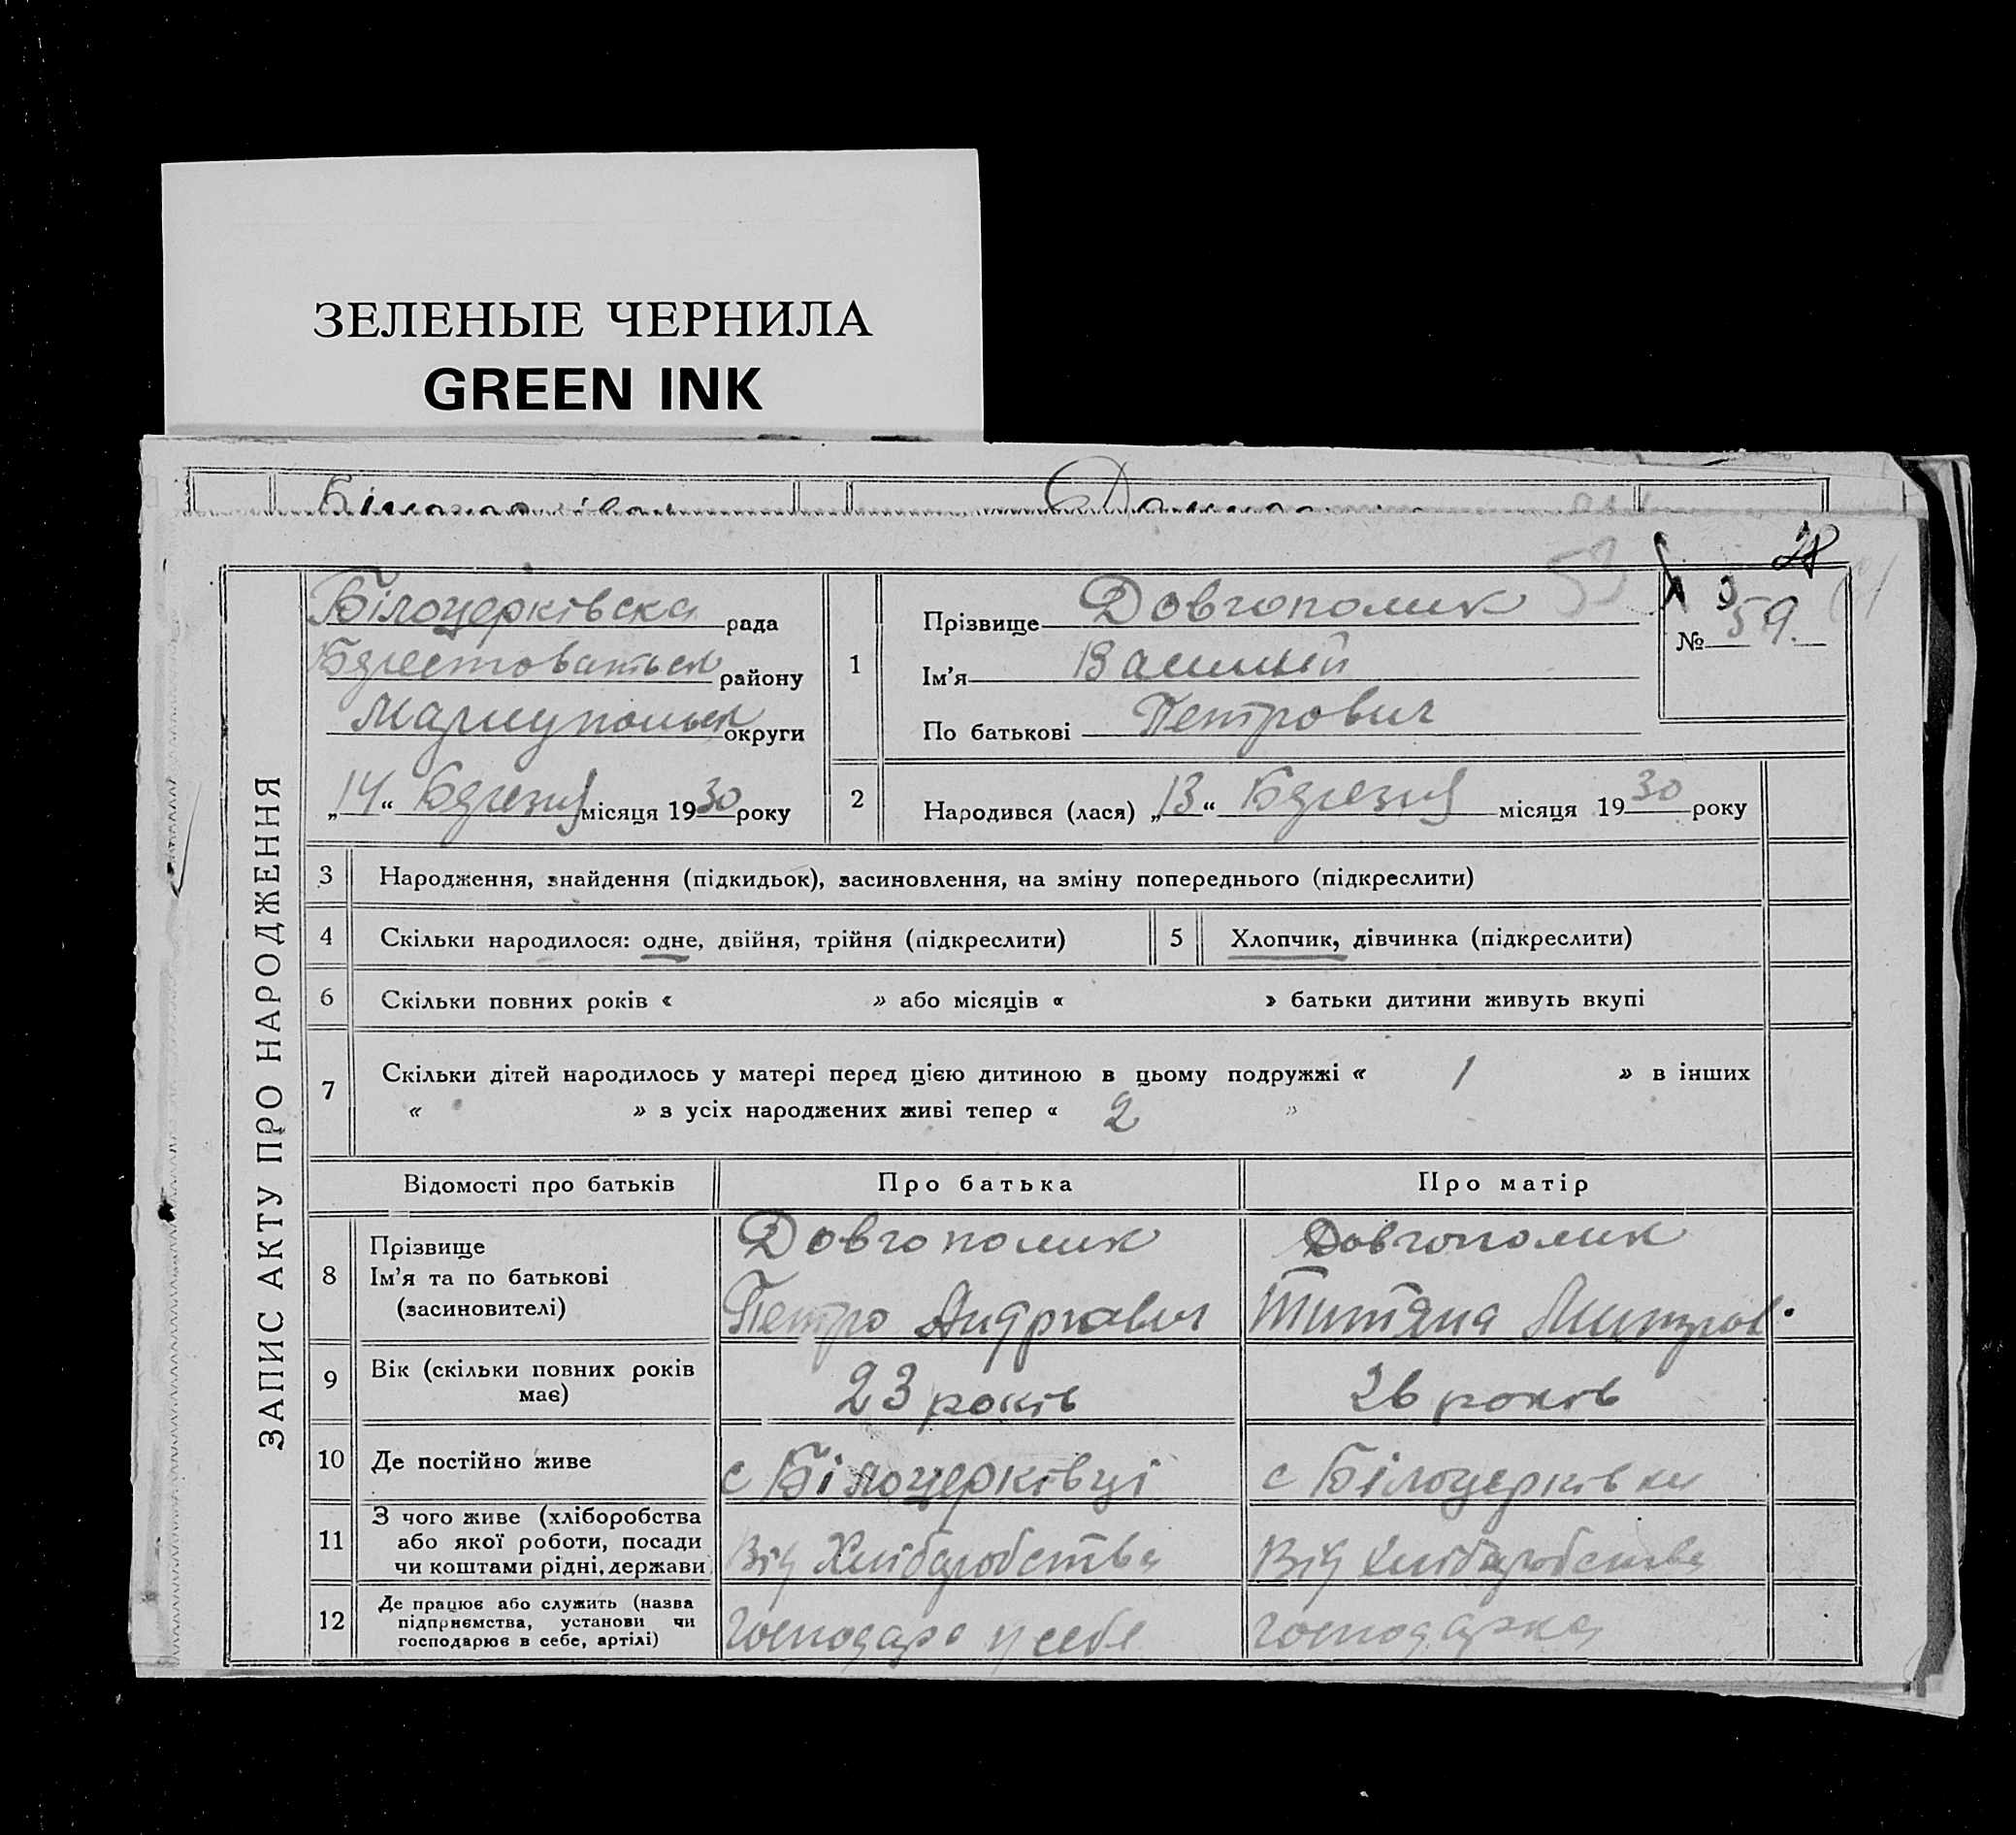 ЗЕЛЕНЫЕ ЧЕРНИЛА
GREEN INK
ЗАПИС АКТУ ПРО НАРОДЖЕННЯ
Білоцерківска рада
району
округи
„14“ Березня місяця 1930 року
1
Прізвище Довгополик
Ім'я Василий
По батькові Петрович
№ 59.
53
2
Народився (лася) „13“ Березня місяця 1930 року
3 Народження, знайдення (підкидьок), засиновлення, на зміну попереднього (підкреслити)
4 Скільки народилося: одне, двійня, трійня (підкреслити)
5 Хлопчик, дівчинка (підкреслити)
6 Скільки повних років « » або місяців « » батьки дитини живуть вкупі
7 Скільки дітей народилось у матері перед цією дитиною в цьому подружжі « 1 » в інших
« » з усіх народжених живі тепер « 2 »
Відомості про батьків Про батька Про матір
8 Прізвище
Ім'я та по батькові
(засиновителі)
Довгополик
Петро Андреевич
Довгополик
Титяна Митров.
9 Вік (скільки повних років
має)
23 років
26 років
10 Де постійно живе
с Білоцерківці
с Білоцерківки
11 З чого живе (хліборобства
або якої роботи, посади
чи коштами рідні, держави
Від Хліборобства
Від хліборобства
12 Де працює або служить (назва
підприємства, установи чи
господарює в себе, артілі)
господарь у себе
господарка